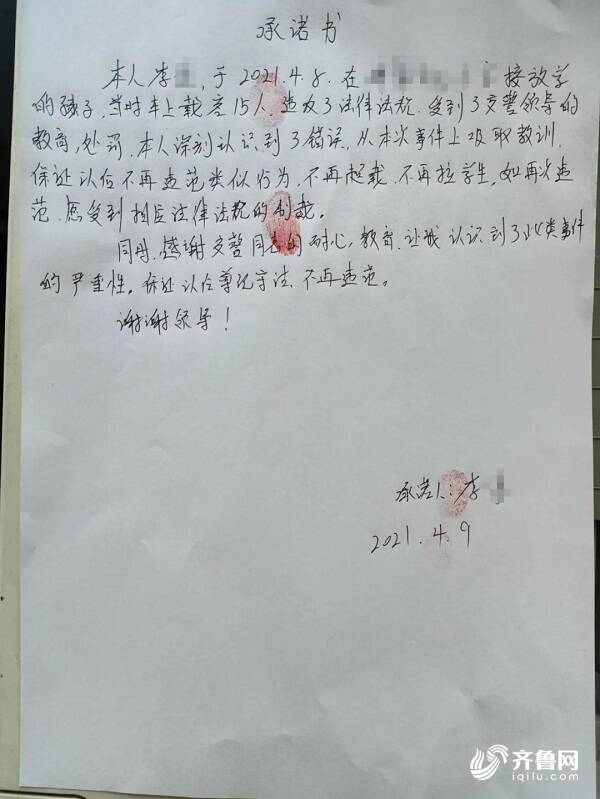 承诺书
本人李，于2021.4.8.在 接放学
的孩子，当时车上载客15人，违反了法律法规，受到了交警领导的
教育，处罚，本人深刻认识到了错误，从本次事件上吸取教训，
保证以后不再违范类似行为，不再超载，不再拉学生，如再次违
范，愿受到相应法律法规的制裁。
同时，感谢交警同志的耐心，教育，让我认识到了此类事件
的严重性，保证以后尊纪守法，不再违范。
谢谢领导！
承诺人：李
2021.4.9
齐鲁网
iqilu.com